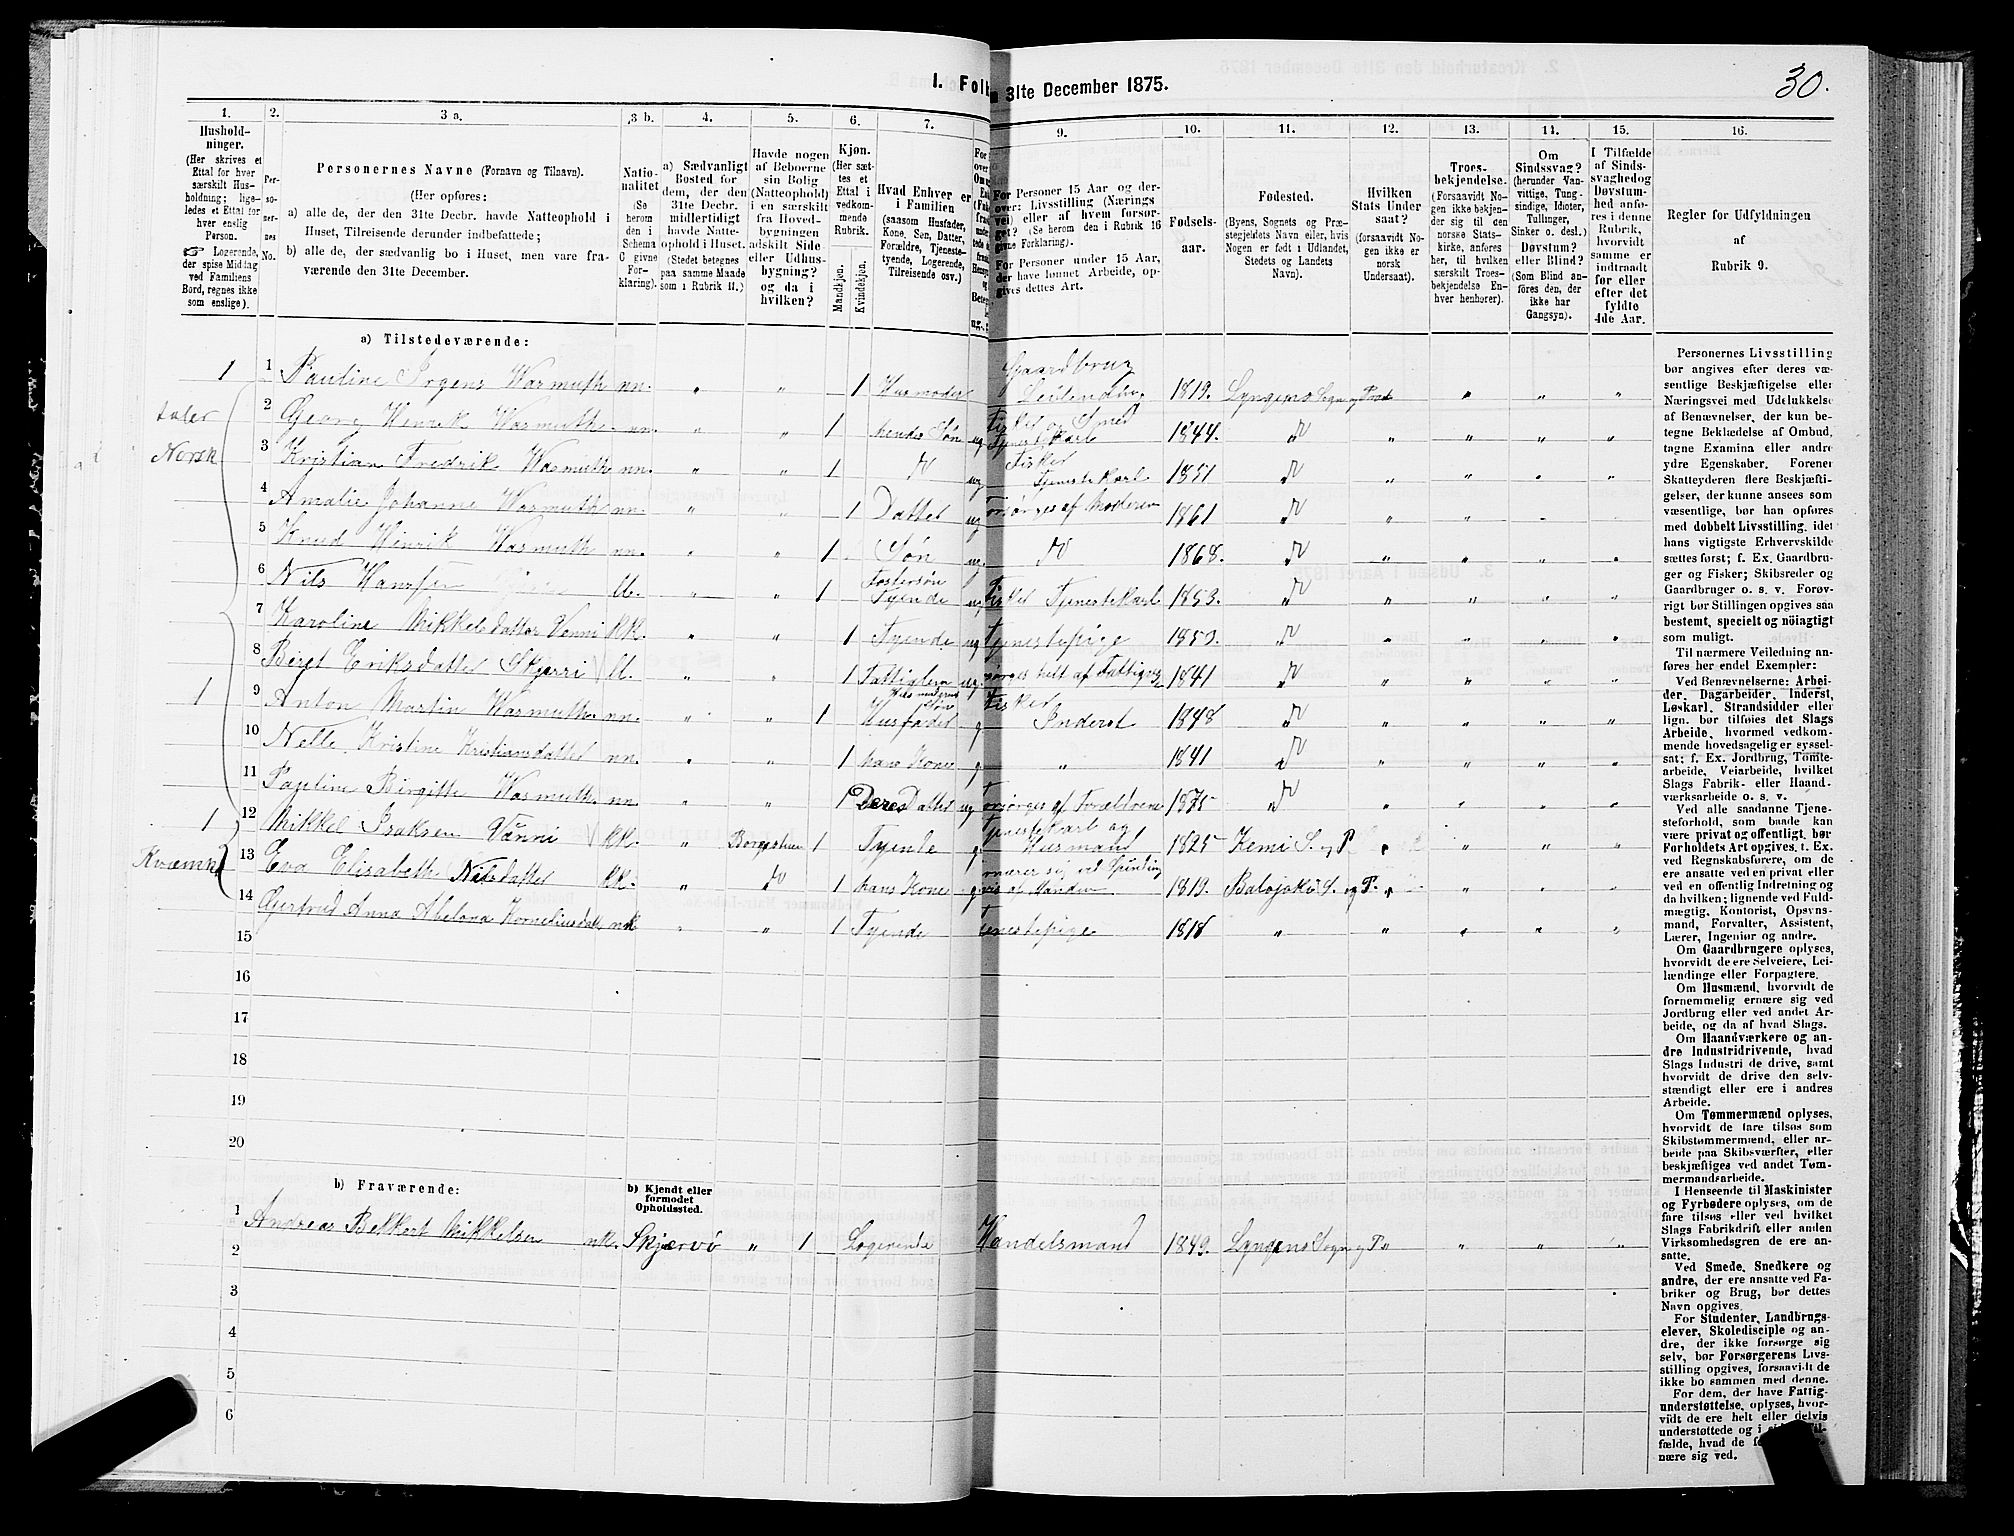 I. Folk
n 31te December 1875.
30.
1.
Hushold-
ninger.
(Her skrives et
Ettal for hver
særskilt Hus-
holdning; lige-
ledes et Ettal for
hver enslig
Person.
Logerende,
der spise Middag
ved Familiens
Bord, regnes ikke
som enslige).
2.
Per-
so-
ner-
nes
No.
3 a.
Personernes Navne (Fornavn og Tilnavn).
(Her opføres:
a) alle de, der den 31te Decbr. havde Natteophold i
Huset, Tilreisende derunder indbefattede;
b) alle de, der sædvanlig bo i Huset, men vare fra-
værende den 31te December.
3 b.
Natio-
nalitet
(Se
herom
den i
Schema
C givne
For-
klaring).
4.
a) Sædvanligt
Bosted for
dem, der den
31te Decbr.
midlertidigt
havde Natte-
ophold i Huset.
(Stedet betegnes
paa samme Maade
som i Rubrik 11.)
5.
Havde nogen
af Beboerne
sin Bolig
(Natteophold)
i en særskilt
fra Hoved-
bygningen
adskilt Side-
eller Udhus-
bygning?
og da i
hvilken?
6.
Kjøn.
(Her sæt-
tes et
Ettal i
vedkom-
mende
Rubrik.
Mandkjøn.
Kvindekjøn.
7.
Hvad Enhver er
i Familien
(saasom Husfader,
Kone, Søn, Datter,
Forældre, Tjeneste-
tyende, Logerende,
Tilreisende osv.)
9.
For Personer 15 Aar og der-
over: Livsstilling (Nærings
vei) eller af hvem forsør-
get? (Se herom den i Rubrik 16
givne Forklaring).
For Personer under 15 Aar,
der have lønnet Arbeide, op-
gives dettes Art.
10.
Fødsels-
aar.
11.
Fødested.
(Byens, Sognets og Præ-
stegjeldets Navn eller, hvis
Nogen er født i Udlandet,
Stedets og Landets
Navn).
12.
Hvilken
Stats Under
saat?
(forsaavidt No-
gen ikke er
norsk
Undersaat).
13.
Troes-
bekjendelse.
(Forsaavidt No-
gen ikke bekjen-
der sig til den
norske Stats-
kirke, anføres
her, til hvilken
særskilt Troes-
bekjendelse En-
hver henhører).
14.
Om
Sindssvag?
(herunder Van-
vittige, Tung-
sindige, Idioter,
Tullinger,
Sinker o. desl.)
Døvstum?
eller Blind?
(Som Blind an-
føres den, der
ikke har
Gangsyn).
15.
I Tilfælde
af Sinds-
svaghed og
Døvstum-
hed anfø-
res i denne
Rubrik,
hvorvidt
samme er
indtraadt
før eller
efter det
fyldte
4de Aar.
16.
Regler for Udfyldningen
af
Rubrik 9.
a) Tilstedeværende:
1 1 Pauline Irgens Warmuth nn. " " 1 Husmoder Gaardbrug Leilending 1819. Lyngens Sogn og Præst " " "
taler 2 Georg Henrik Warmuth nn. " " 1 hendes Søn ug Fisker og Smed Tjenestekarl 1844. " " " "
Norsk 3 Kristian Fredrik Warmuth nn. " " 1 ug Fisker Tjenestekarl 1851 " " " "
4 Amalie Johanne Warmuth nn. " " 1 Datter ug Forsørges af Moderen 1861 " " " "
5 Knud Hinrik Warmuth nn. " " 1 Søn ug. 1868. " " " "
6 Nils Hansen U. " " 1 Fostersøn Tyende ug Fisker Tjenestekarl 1853. " " " "
7 Karoline Mikkelsdatter Vanni KK. " " 1 Tyende ug Tjenestepige 1850. " " " "
8 Beret Eriksdatter Skjarri U. " " 1 Fattiglem ug. Forsørges helt af Fattigv. 1841 " " " "
1 9 Anton Martin Warmuth nn. " " 1 Husmoderens Søn Husfader g Fisker Inderst 1848 " " " "
10 Nelle Kristine Kristiansdatter nn. " " 1 hans Kone g " 1841 " " " "
11 Pauline Birgitte Warmuth nn " " 1 Deres Datter ug Forsørges af Forældrene 1875 " " " "
1 12 Mikkel Isaksen Vänni KK. " Borgestuen 1 Tyende g Tjenestekarl og Husmand 1825 Kemi S. og P. " " "
Kvænsk 13 Eva Elisabeth Nilsdatter KK. " 1 hans Kone g nærer sig ved Spinding 1819. S. og P. " " "
14 Gertrud Anna Abelona Korneliusdatr nk " " 1 Tyende Tjenestepige 1818 " " " " "
15
16
17
18
19
20
b) Fraværende:
b) Kjendt eller
formodet
Opholdssted.
1 Andreas Bekkert Mikkelsen nk. Skjærvø " 1 Logerende Handelsmand 1849. Lyngens Sogn og P. " " "
2
3
4
5
6
Personernes Livsstilling
bør angives efter deres væ-
sentlige Beskjæftigelse eller
Næringsvei med Udelukkelse
af Benævnelser, der kun be-
tegne Beklædelse af Ombud,
tagne Examina eller andre
ydre Egenskaber. Forener
Skatteyderen flere Beskjæfti-
gelser, der kunne ansees som
væsentlige, bør han opføres
med dobbelt Livsstilling, idet
hans vigtigste Erhvervskilde
sættes først; f. Ex. Gaardbru-
ger og Fisker; Skibsreder og
Gaardbruger o. s. v. Forøv-
rigt bør Stillingen opgives saa
bestemt, specielt og nøiagtigt
som muligt.
Til nærmere Veiledning an-
føres her endel Exempler:
Ved Benævnelserne: Arbei-
der, Dagarbeider, Inderst,
Løskarl, Strandsidder eller
lign. bør tilføies det Slags
Arbeide, hvormed vedkom-
mende hovedsagelig er syssel-
sat; f. Ex. Jordbrug, Tomte-
arbeide, Veiarbeide, hvilket
Slags Fabrik- eller Haand-
værksarbeide o. s. v.
Ved alle saadanne Tjene-
steforhold, som baade kan
være privat og offentligt, bør
Forholdets Art opgives, t. Ex.
ved Regnskabsførere, om de
ere ansatte ved en privat eller
ved en offentlig Indretning og
da hvilken; lignende ved Fuld-
mægtig, Kontorist, Opsyns-
mand, Forvalter, Assistent,
Lærer, Ingeniør og andre.
Om Gaardbrugere oplyses,
hvorvidt de ere Selveiere, Lei-
lændinge eller Forpagtere.
Om Husmænd, hvorvidt de
fornemmelig ernære sig ved
Jordbrug eller ved andet Ar-
beide, og da af hvad Slags.
Om Haandværkere og an-
dre Industridrivende, hvad
Slags Industri de drive, samt
hvorvidt de drive den selv-
stændigt eller ere i andres
Arbeide.
Om Tømmermænd oplyses,
hvorvidt de fare tilsøs som
Skibstømmermænd, eller ar-
beide paa Skibsværfter, eller
beskjæftiges ved andet Tøm-
mermandsarbeide.
I Henseende til Maskinister
og Fyrbødere oplyses, om de
fare tilsøs eller ved hvilket
Slags Fabrikdrift eller anden
Virksomhedsgren de ere an-
satte.
Ved Smede, Snedkere og
andre, der ere ansatte ved Fa-
briker og Brug, bør dettes
Navn opgives.
For Studenter, Landbrugs-
elever, Skoledisciple og an-
dre, der ikke forsørge sig
selv, bør Forsørgerens Livs-
stilling opgives, forsaavidt de
ikke bo sammen med denne.
For dem, der have Fattig-
understøttelse, oplyses, hvor-
vidt de ere helt eller delvis
understøttede og i
fælde, hvad de
nære sig ved.